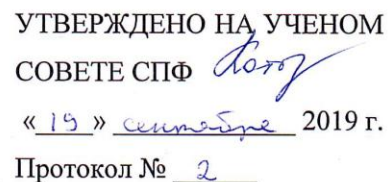 УТВЕРЖДЕНО НА УЧЕНОМ
СОВЕТЕ СПФ
«19» сентября 2019 г.
Протокол № 2